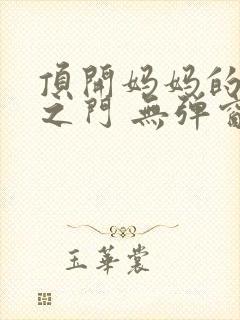 頂開妈妈的
之门 無弹窗
玉華裳